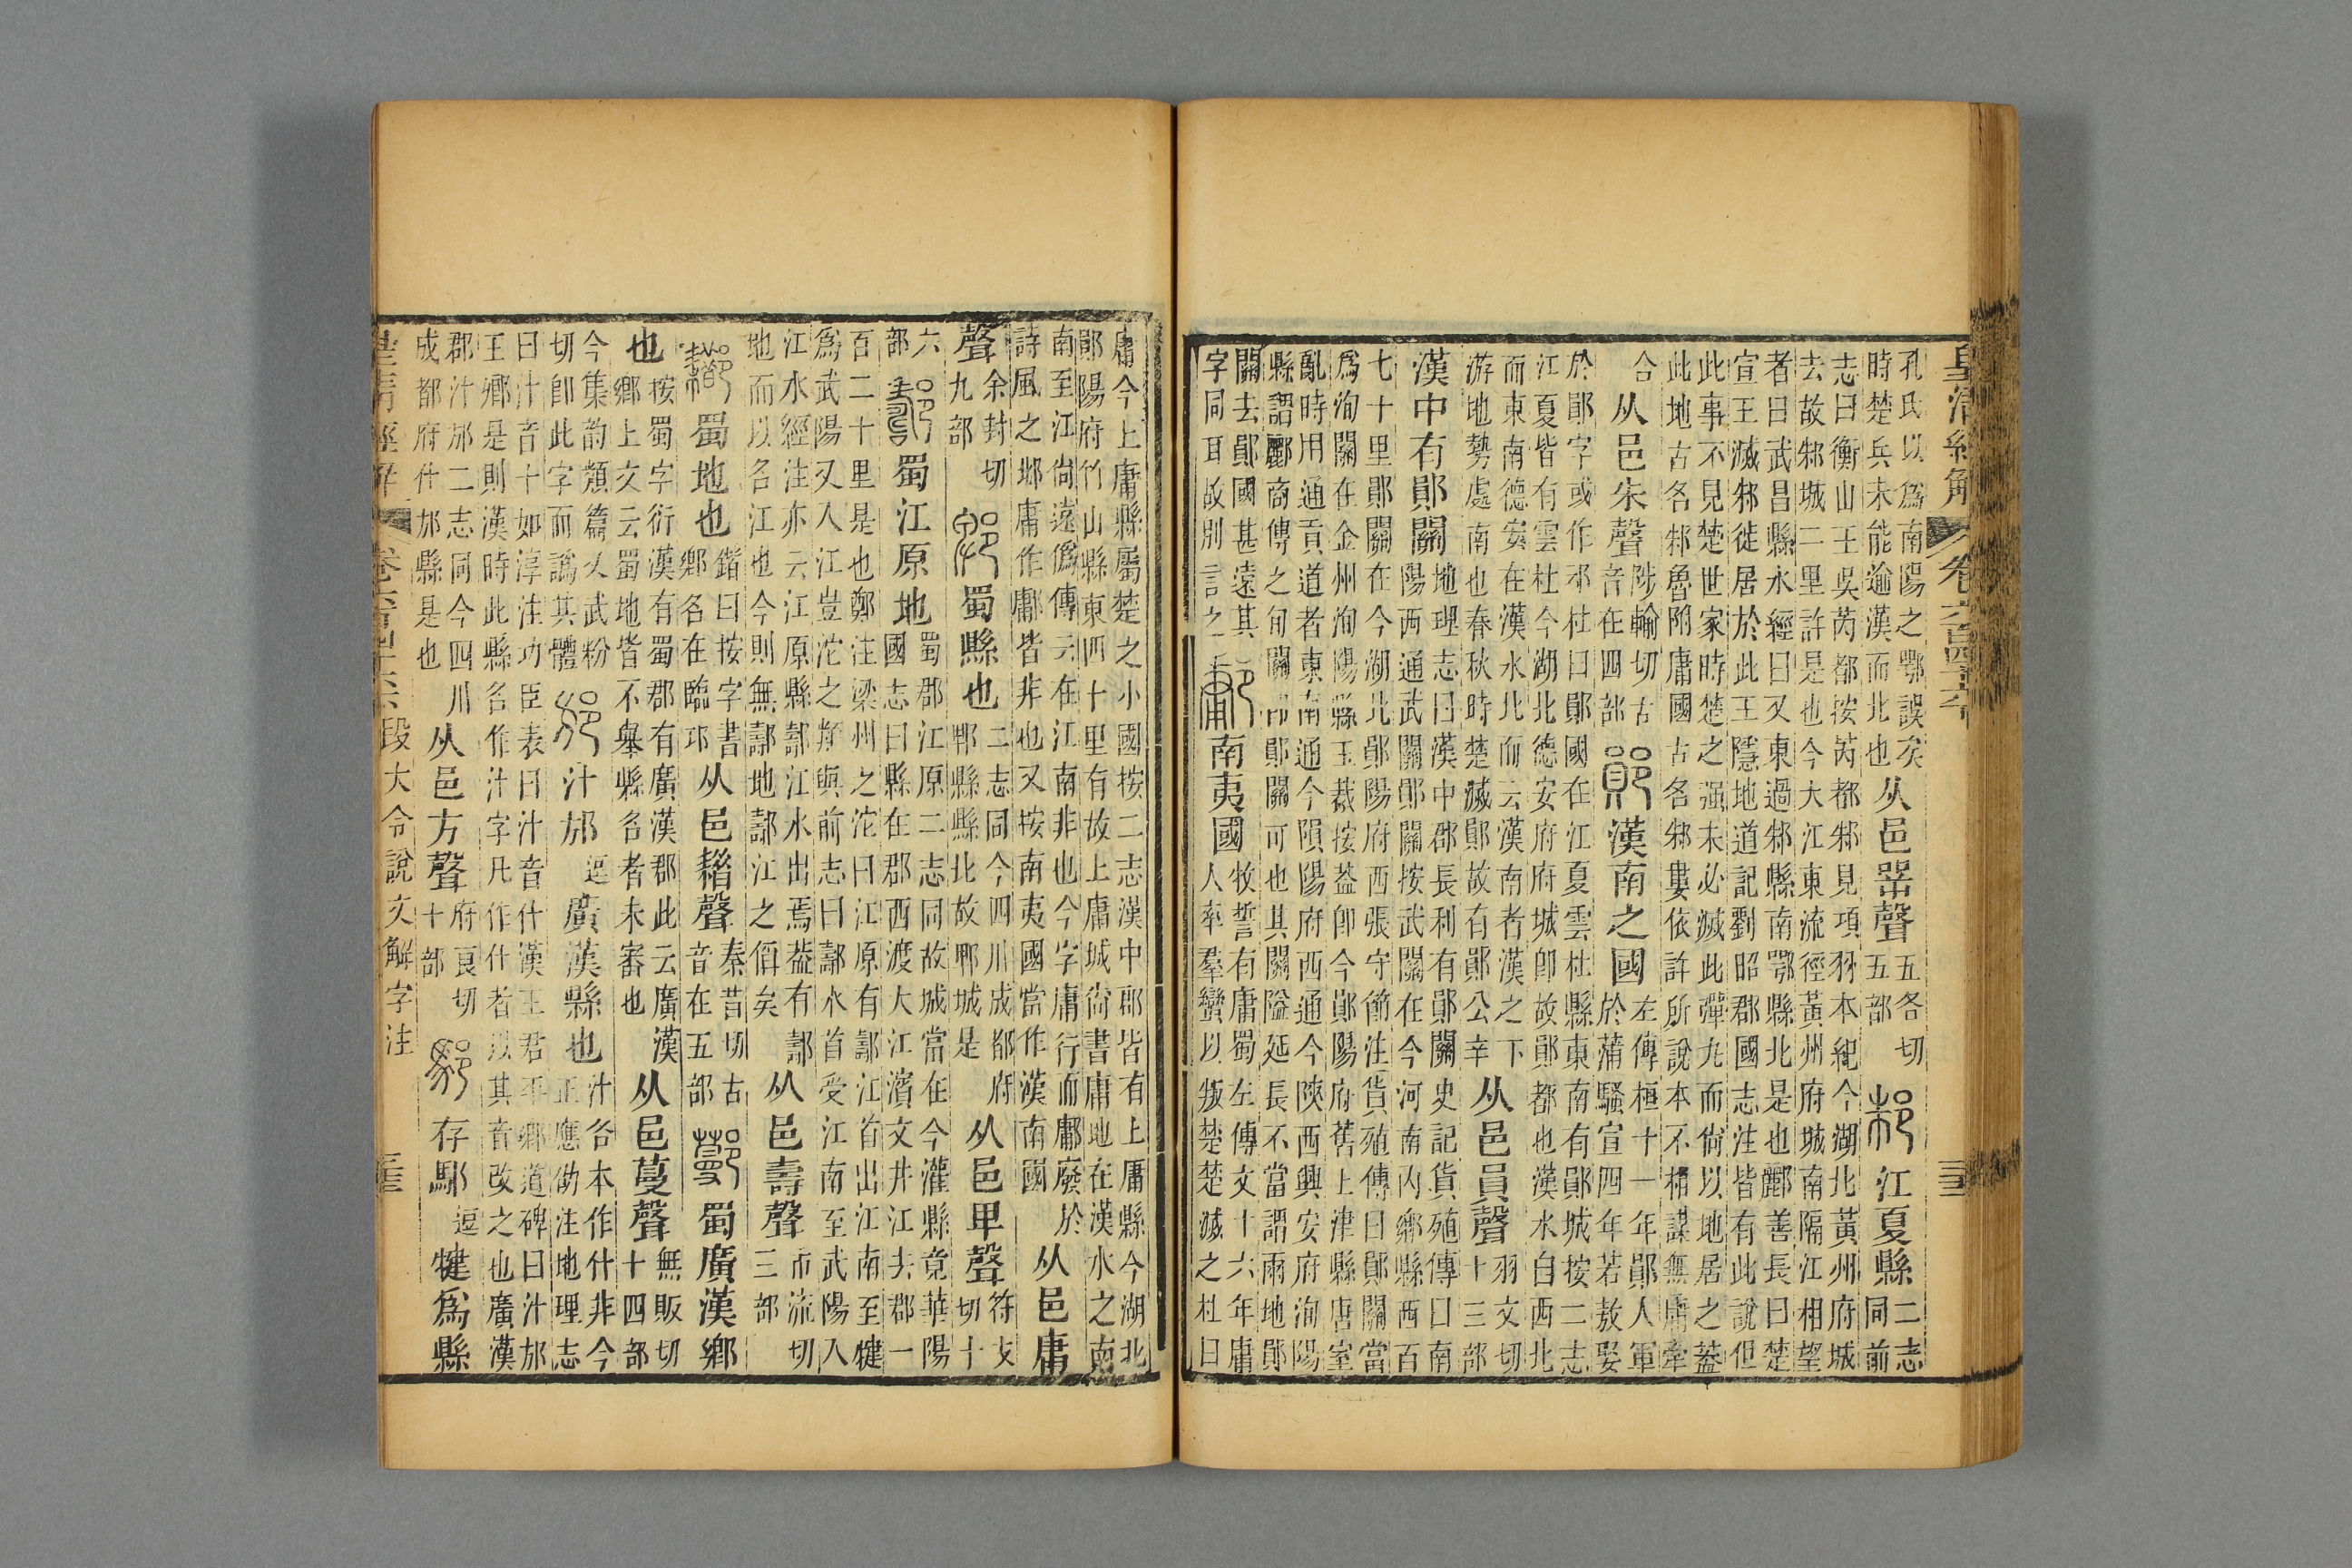 皇清經解 卷六百四十六
孔氏以爲南陽之鄂誤矣
時楚兵未能逾漢而北也
从邑咢聲
五各切
五部
邾
江夏縣
二志
同前
志曰衡山王吳芮都按芮都邾見項羽本紀今湖北黃州府城
去故邾城二里許是也今大江東流徑黃州府城南隔江相望
者曰武昌縣水經曰又東過邾縣南鄂縣北是也酈善長曰楚
宣王滅邾徙居於此王隱地道記劉昭郡國志注皆有此說但
此事不見楚世家時楚之强未必滅此彈丸而尙以地居之蓋
此地古名邾魯附庸國古名邾婁依許所說本不相謀無庸牽
合
从邑朱聲
陟輸切古
音在四部
鄖
漢南之國
左傳桓十一年鄖人軍
於蒲騷宣四年若敖娶
於鄖字或作䢵杜曰鄖國在江夏雲杜縣東南有鄖城按二志
江夏皆有雲杜今湖北德安府府城卽故鄖都也漢水自西北
而東南德安在漢水北而云漢南者漢之下
游地勢處南也春秋時楚滅鄖故有鄖公辛
从邑員聲
羽文切
十三部
漢中有鄖關
地理志曰漢中郡長利有鄖關史記貨殖傳曰南
陽西通武關鄖關按武關在今河南內鄉縣西百
七十里鄖關在今湖北鄖陽府西張守節注貨殖傳曰鄖關當
爲洵關在金州洵陽縣玉裁按葢卽今鄖陽府舊上津縣唐室
亂時用通貢道者東南通今隕陽府西通今陝西興安府洵陽
縣謂酈商傳之旬關卽鄖關可也其關隘延長不當謂兩地鄖
關去鄖國甚遠其
字同耳故別言之
鄘
南夷國
牧誓有庸蜀左傳文十六年庸
人率羣蠻以叛楚楚滅之杜曰
庸今上庸縣屬楚之小國按二志漢中郡皆有上庸縣今湖北
鄖陽府竹山縣東四十里有故上庸城尙書庸地在漢水之南
南至江尙遠僞傳云在江南非也今字庸行而鄘廢於
詩風之鄁庸作鄘皆非也又按南夷國當作漢南國
从邑庸
聲
余封切
九部
郫
蜀縣也
二志同今四川成都府
郫縣縣北故郫城是
从邑卑聲
符支
切十
六
部
𨞪
蜀江原地
蜀郡江原二志同故城當在今灌縣竟華陽
國志曰縣在郡西渡大江濱文井江去郡一
百二十里是也鄭注梁州之沱曰江原有𨞪江首出江南至犍
爲武陽又入江豈沱之類與前志曰𨞪水首受江南至武陽入
江水經注亦云江原縣𨞪江水出焉葢有𨞪
地而以名江也今則無𨞪地𨞪江之偁矣
从邑壽聲
市流切
三部
䣢
蜀地也
鍇曰按字書
鄉名在臨邛
从邑耤聲
秦昔切古
音在五部
𨟋
蜀廣漢鄉
也
按蜀字衍漢有蜀郡有廣漢郡此云廣漢
鄉上文云蜀地皆不舉縣名者未審也
从邑蔓聲
無販切
十四部
今集韵類篇乆武粉
切卽此字而譌其體
邡
汁邡
逗
廣漢縣也
汁各本作什非今
正應劭注地理志
曰汁音十如淳注功臣表曰汁音什漢王君平鄉道碑曰汁邡
王鄉是則漢時此縣名作汁字凡作什者以其音改之也廣漢
郡汁邡二志同今四川
成都府什邡縣是也
从邑方聲
府良切
十部
𨞼
存𨞼
逗
犍爲縣
皇清經解 卷六百四十六 段大令說文解字注